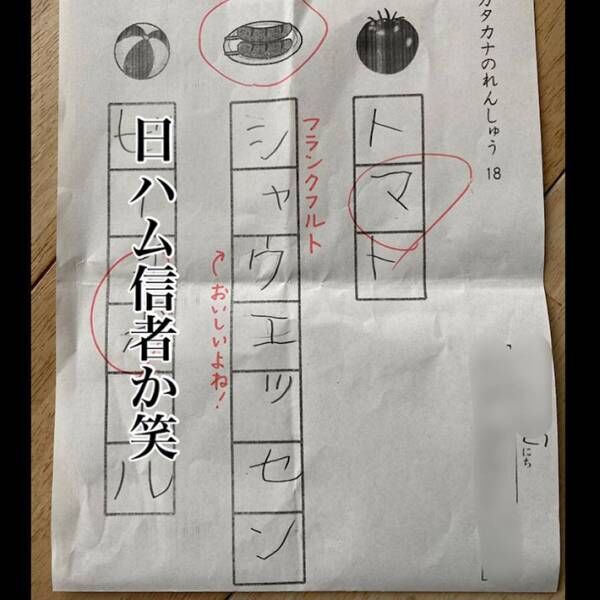 カタカナのれんしゅう 18
にち
トマト
フランクフルト
シャウエッセン
おいしいよね!
日ハム信者か笑